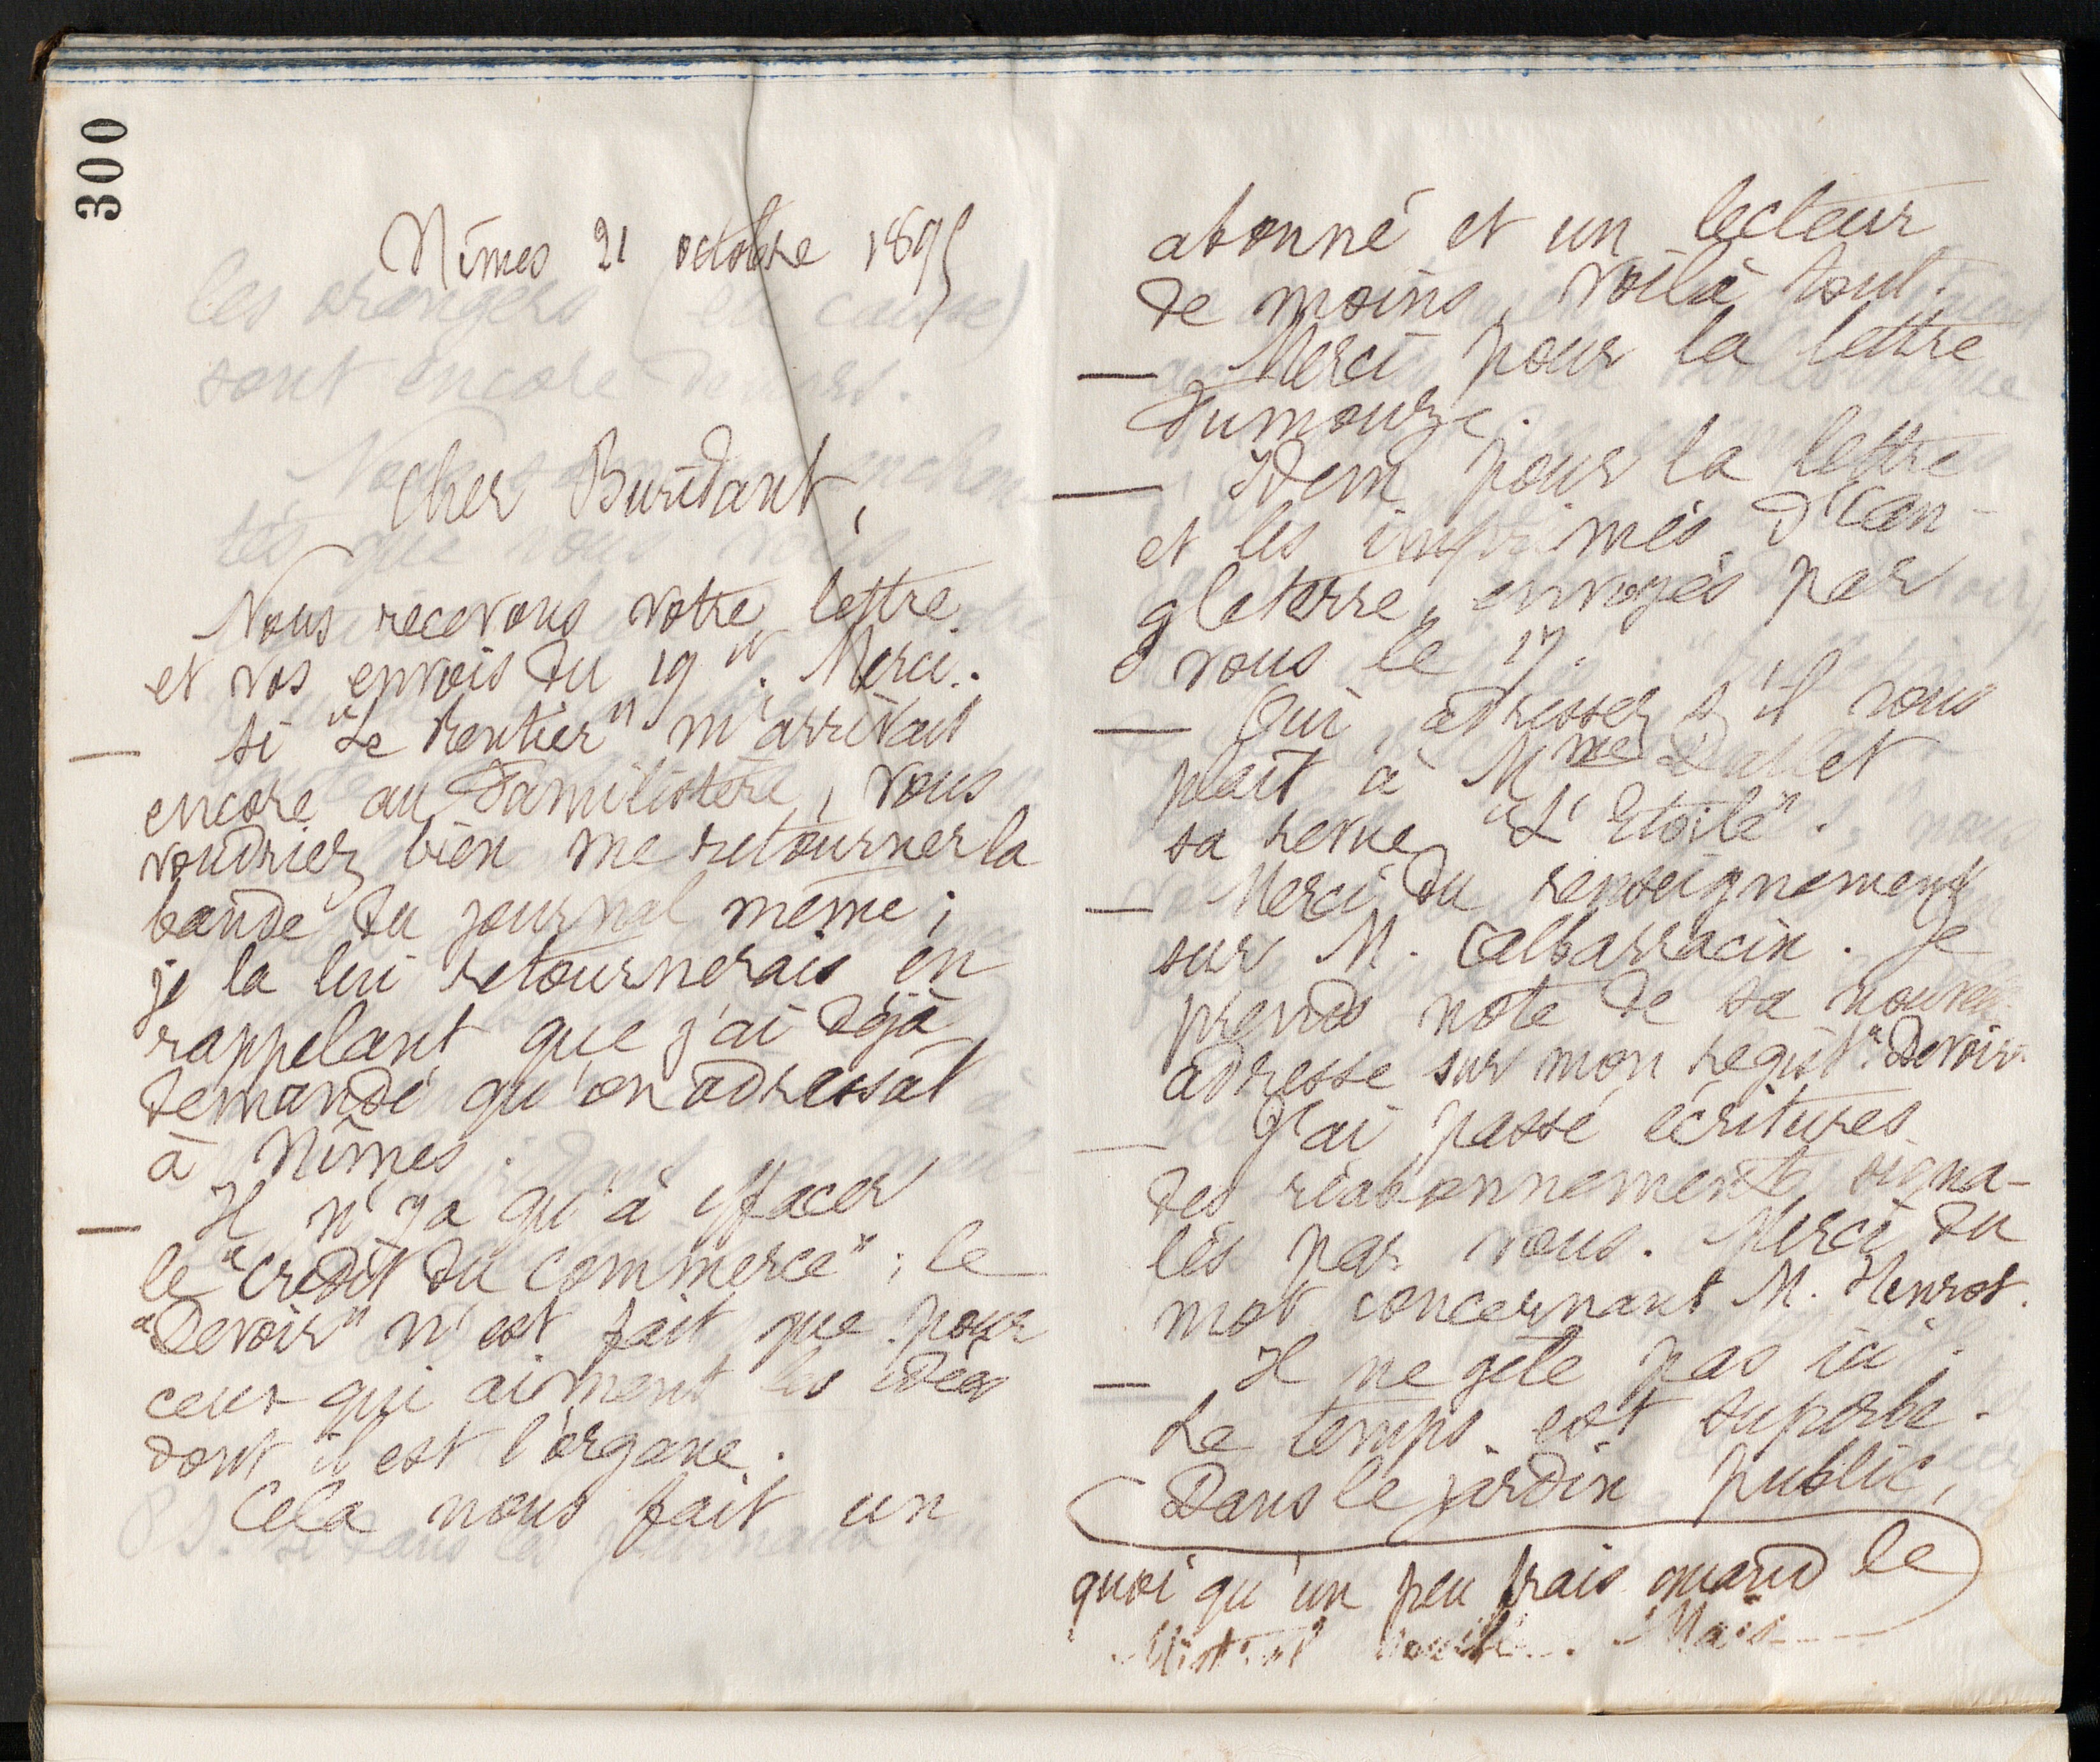 300
Nîmes 21 octobre 1895
Cher Buridant,
Nous recevons votre lettre
et vos envois du 19 ct. Merci.
— Si "Le Rentier" m'arrivait
encore au Familistère, vous
voudriez bien me retourner la
bande du journal même ;
je la lui retournerais en
rappelant que j'ai déjà
demandé qu'on adressât
à Nîmes.
— Il n'y a qu'à effacer
le "Crédit du Commerce" ; le
"Devoir" n'est fait que pour
ceux qui aiment les idées
dont il est l'organe.
Cela nous fait un
abonné et un lecteur
de moins, voilà tout.
— Merci pour la lettre
Dumouze.
— Idem pour la lettre
et les imprimés d'an-
gleterre, envoyés par
vous le 17.
— Oui, adressez s'il vous
plaît à Mme
sa revue "L'Etoile".
— Merci du renseignement
sur M. Calbarracin. Je
prends note de sa
adresse sur mon regist. "Devoir"
— J'ai passé écritures
des réabonnements signa-
lés par vous. Merci du
mot concernant M. Henrot.
— Il ne gèle pas ici.
Le temps est superbe.
Dans le jardin public,
quoi qu'un peu frais quand le
Mistral souffle. Mais